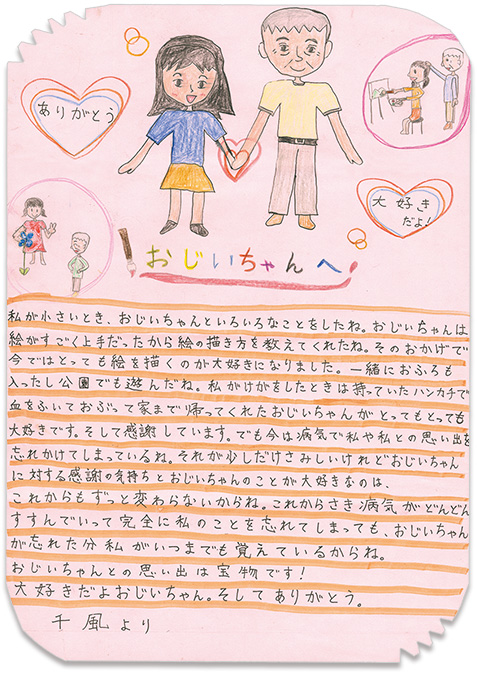 ありがとう
大好き
だよ!
おじいちゃんへ
私が小さいとき、おじいちゃんといろいろなことをしたね。おじいちゃんは
絵がすごく上手だったから絵の描き方を教えてくれたね。そのおかげで
今ではとっても絵を描くのが大好きになりました。一緒におふろも
入ったし公園でも遊んだね。私がけがをしたときは持っていたハンカチで
血をふいておぶって家まで帰ってくれたおじいちゃんがとってもとっても
大好きです。そして感謝しています。でも今は病気で私や私との思い出を
忘れかけてしまっているね。それが少しだけさみしいけれどおじいちゃん
に対する感謝の気持ちとおじいちゃんのことが大好きなのは、
これからもずっと変わらないからね。これからさき病気がどんどん
すすんでいって完全に私のことを忘れてしまっても、おじいちゃん
が忘れた分私がいつまでも覚えているからね。
おじいちゃんとの思い出は宝物です!
大好きだよおじいちゃん。そしてありがとう。
千風より